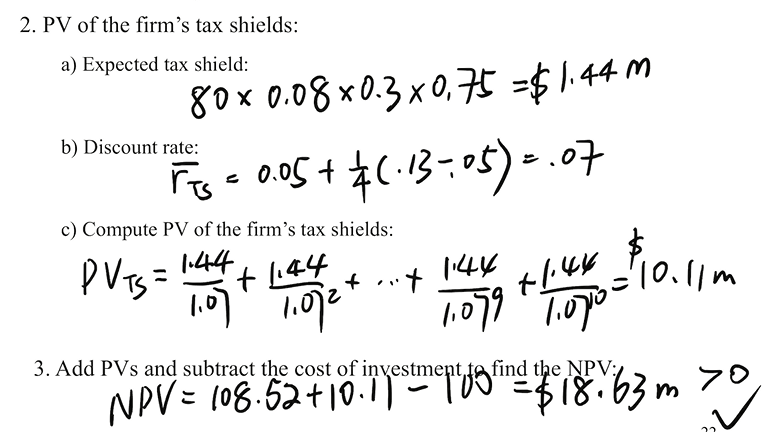 2. PV of the firm's tax shields:
a) Expected tax shield:
80 × 0.08 × 0.3 × 0.75 = $1.44 m
b) Discount rate:
r̅_TS = 0.05 + 1/4 (.13 - .05) = .07
c) Compute PV of the firm's tax shields:
PV_TS = 1.44/1.07 + 1.44/1.07² + ... + 1.44/1.07⁹ + 1.44/1.07¹⁰ = $10.11 m
3. Add PVs and subtract the cost of investment to find the NPV:
NPV = 108.52 + 10.11 - 100 = $18.63 m > 0 ✓